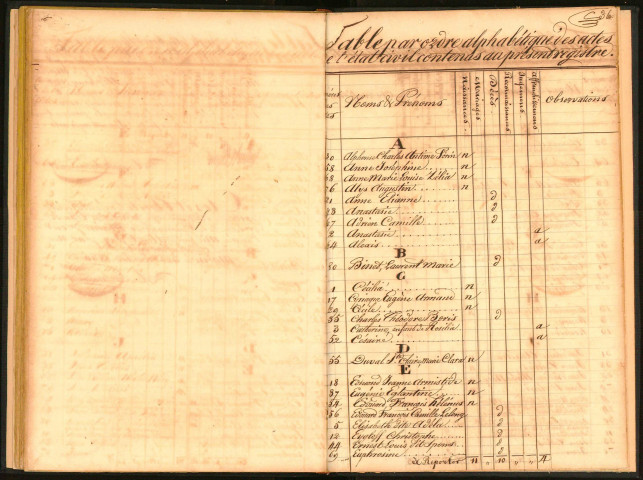 36
Table par ordre alphabétique des actes
e l'état civil contenus au présent registre.
Noms & Prénoms Naissances Mariages Décès Reconnaissances Jugemens Affranchissemens Observations
A
Alphonse Charles Antime n
58 Anne Joséphine n
68 Anne Marie Louise Zélia n
76 Alys Augustin n
21 Anne Etienne d
43 Anastasie d
47 Adrien Camille d
2 Anastasie a
54 Alexis a
B
50 Binet, Laurent Marie d
C
1 Cécilia n
17 Eugène Armand n
29 Cécile n
35 Charles Théodore d
3 Catherine, enfant de Rosélia a
52 Césaire a
D
55 Duval Ste Claire, Marie Clara n
E
18 Edmond Jeanne Armistide n
37 Eugénie Eglantine n
54 Edouard François n
56 Edouard François Camille d
5 Elisabeth dite Adéla d
12 Christophe d
44 Ernest Louis d
69 Euphrosine d
à Reporter 11 " 10 " " 4